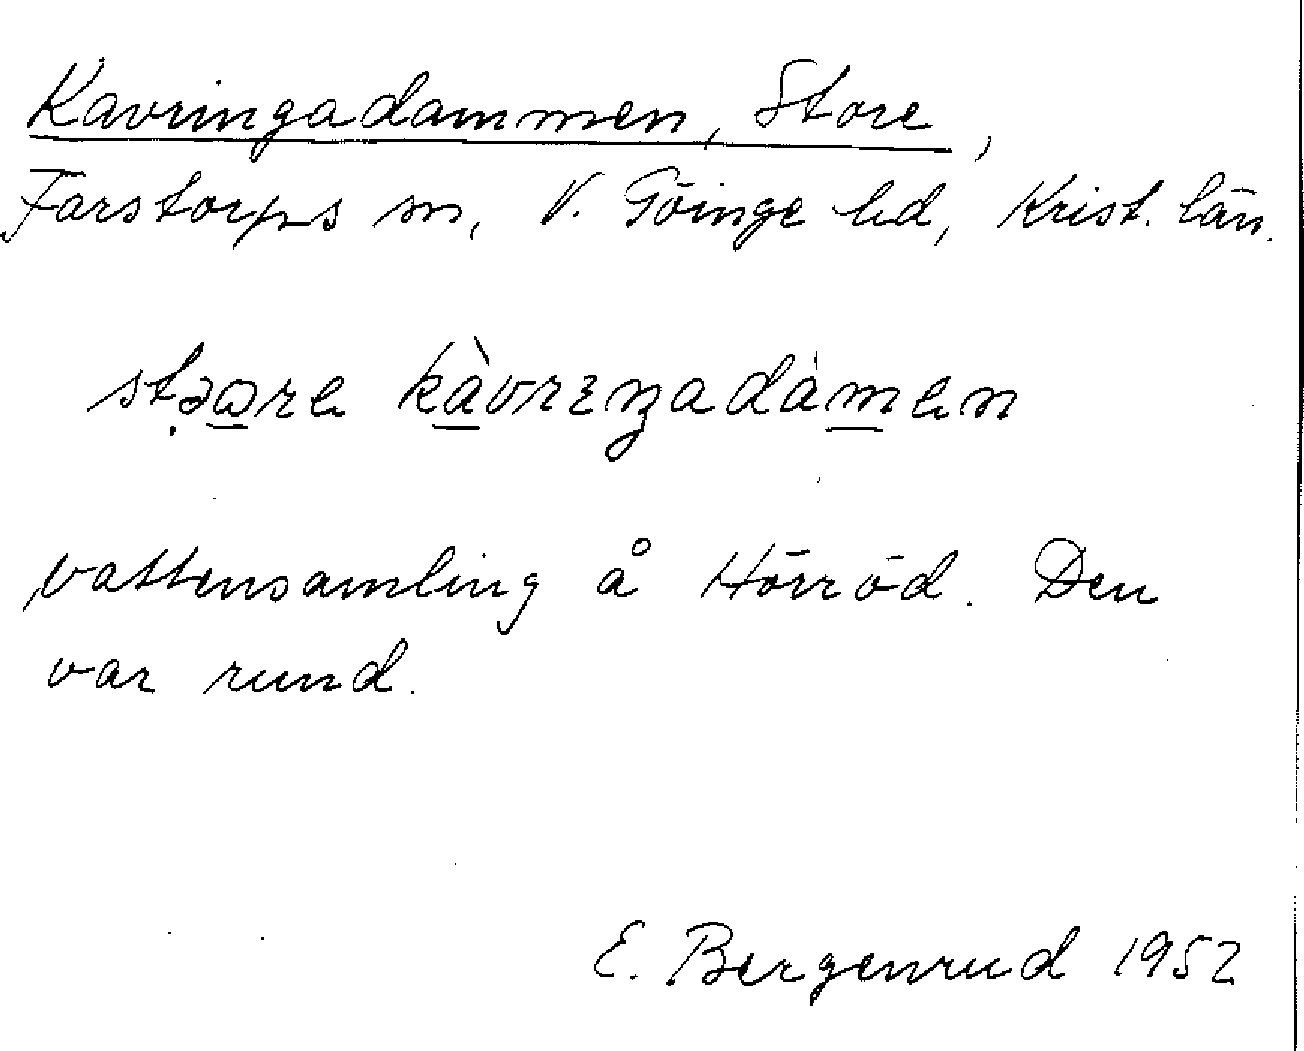 Kavringadammen, Store,
Farstorps sn, V. Göinge hd, Krist. län.
kàvrɪŋadàmen
vattensamling å Hörröd. Den
var rund.
E. Bergenrud 1952